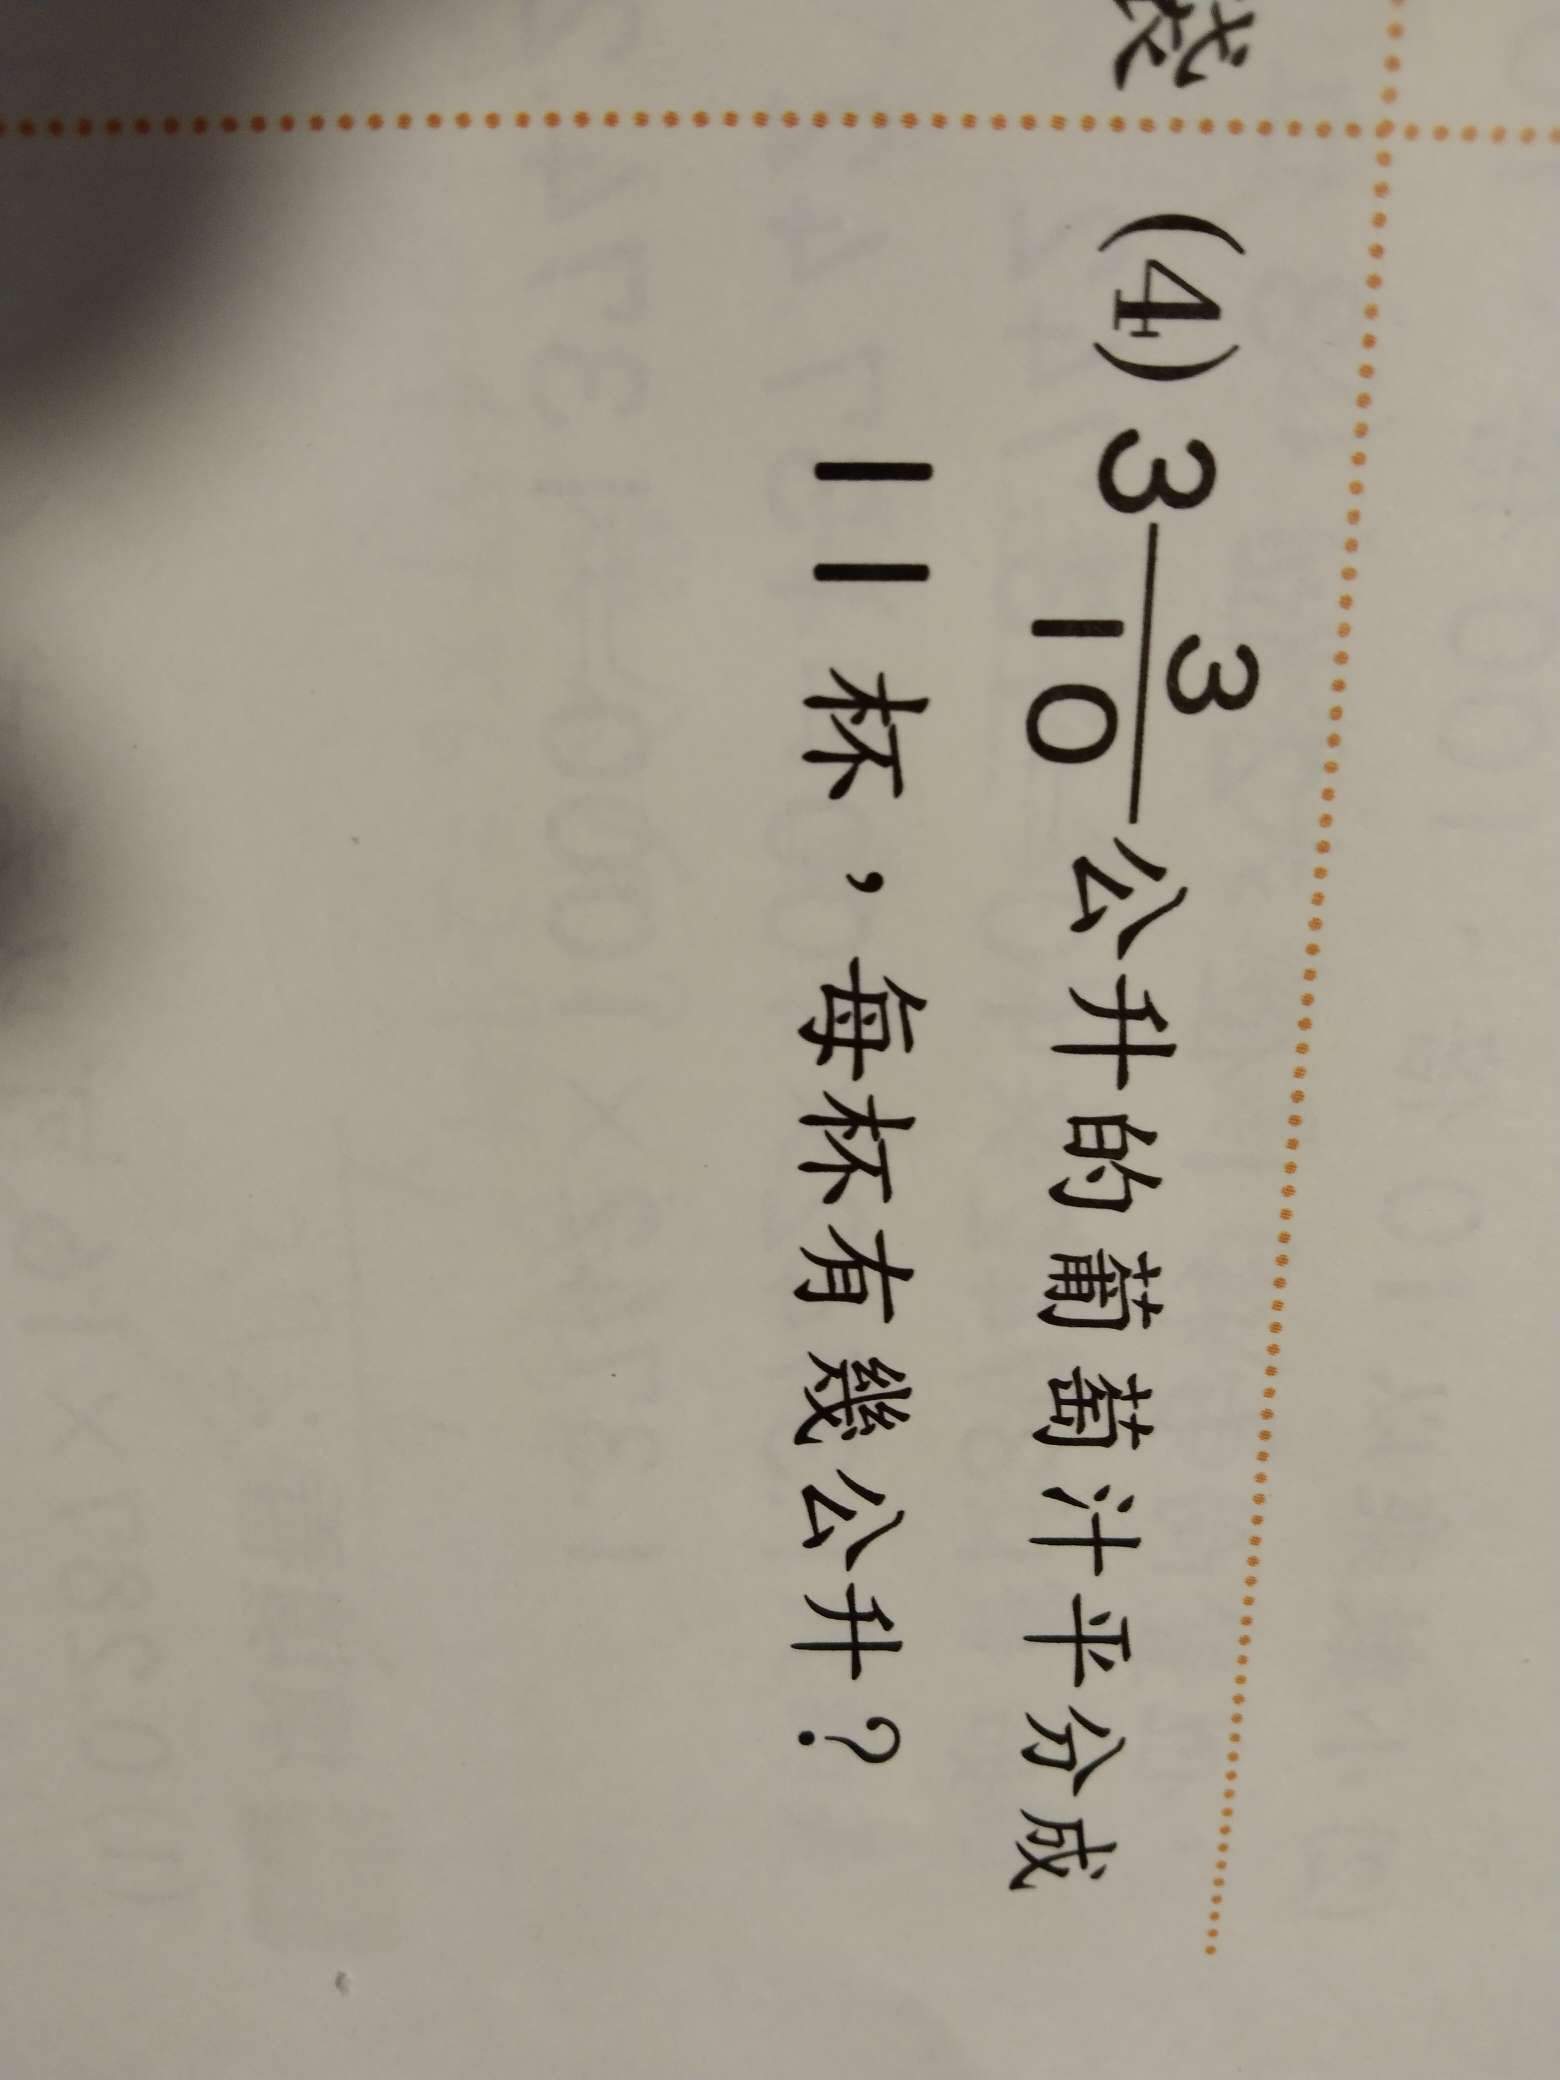 (4) 3 3/10 公升的葡萄汁平分成
11 杯，每杯有幾公升？